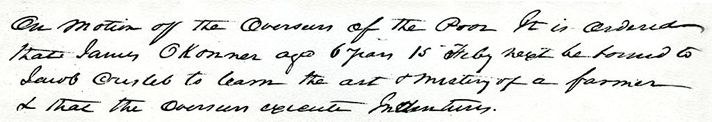 On Motion of the Overseers of the Poor It is ordered
that James OKonner age 6 years 15 Feby next be bound to
Jacob to learn the art & mistery of a farmer
& that the Overseers execute Indentures.